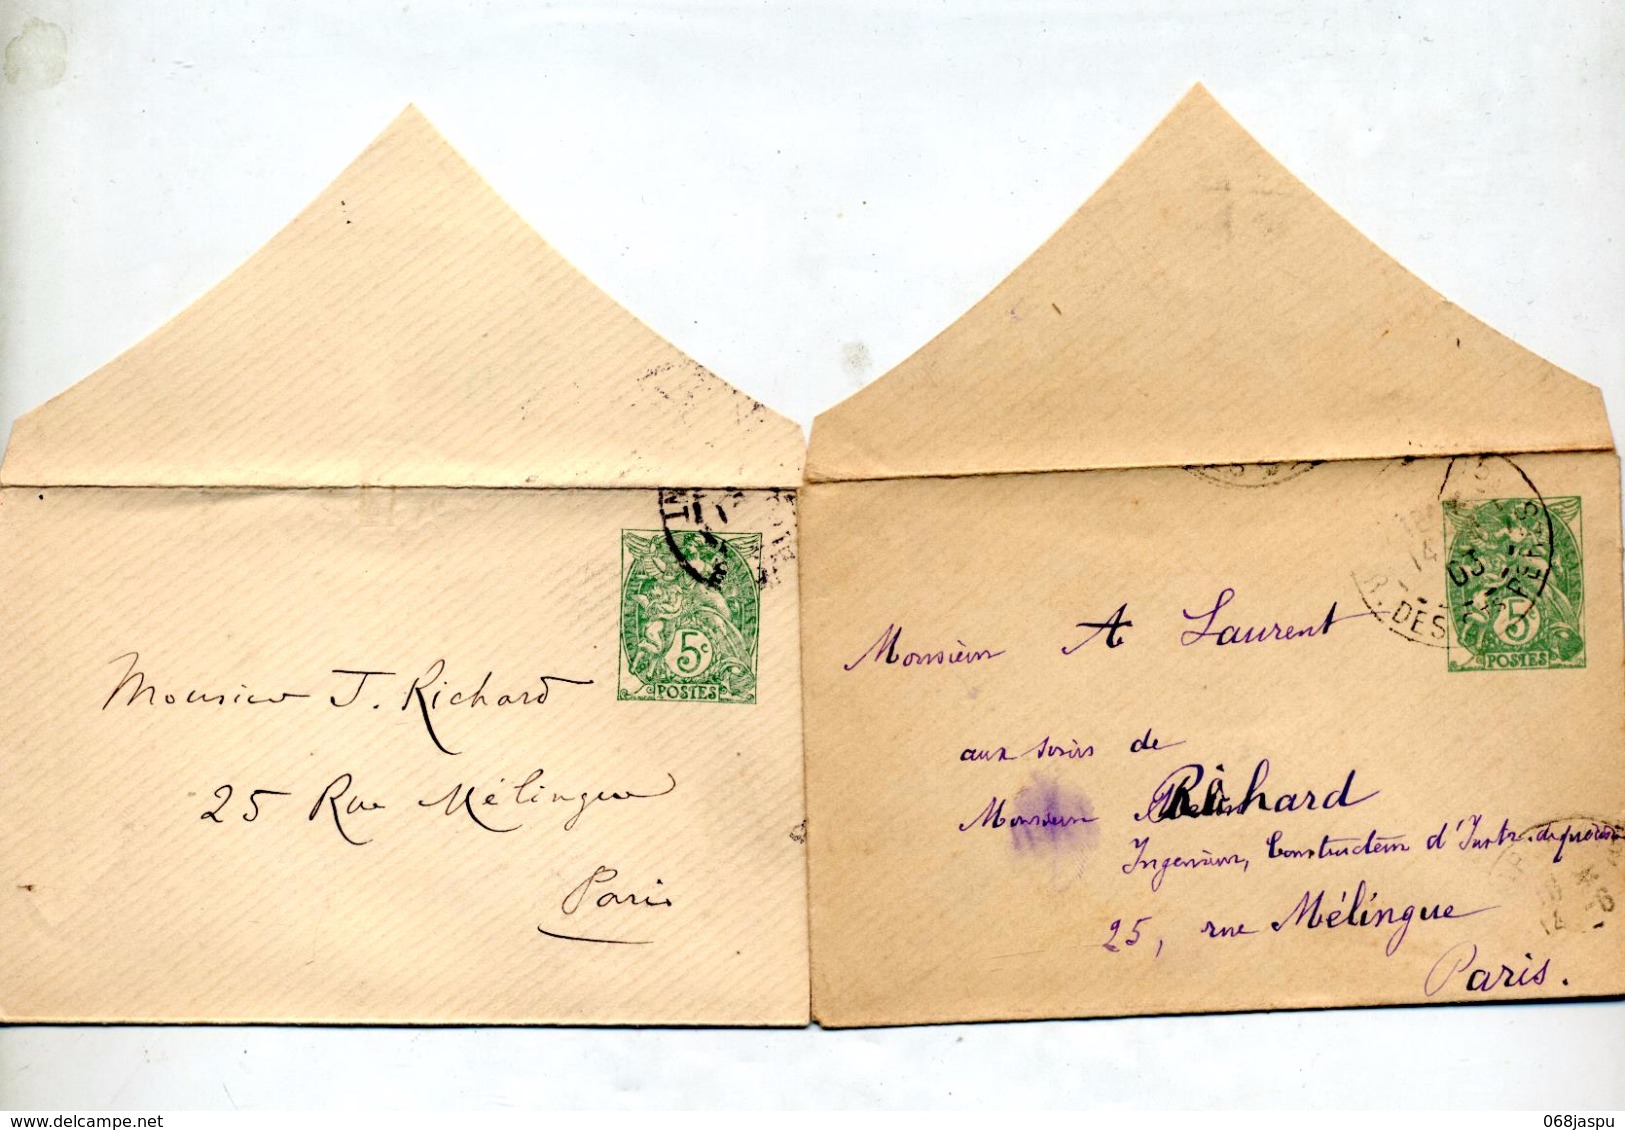 5c
POSTES
Monsieur J. Richard
25 Rue Mélingue
Paris
03
R. DES
5c
POSTES
Monsieur A Laurent
aux soins de
Monsieur Richard
Ingénieur, Constructeur d'Instr. de précision
25, rue Mélingue
Paris.
delcampe.net
068jaspu